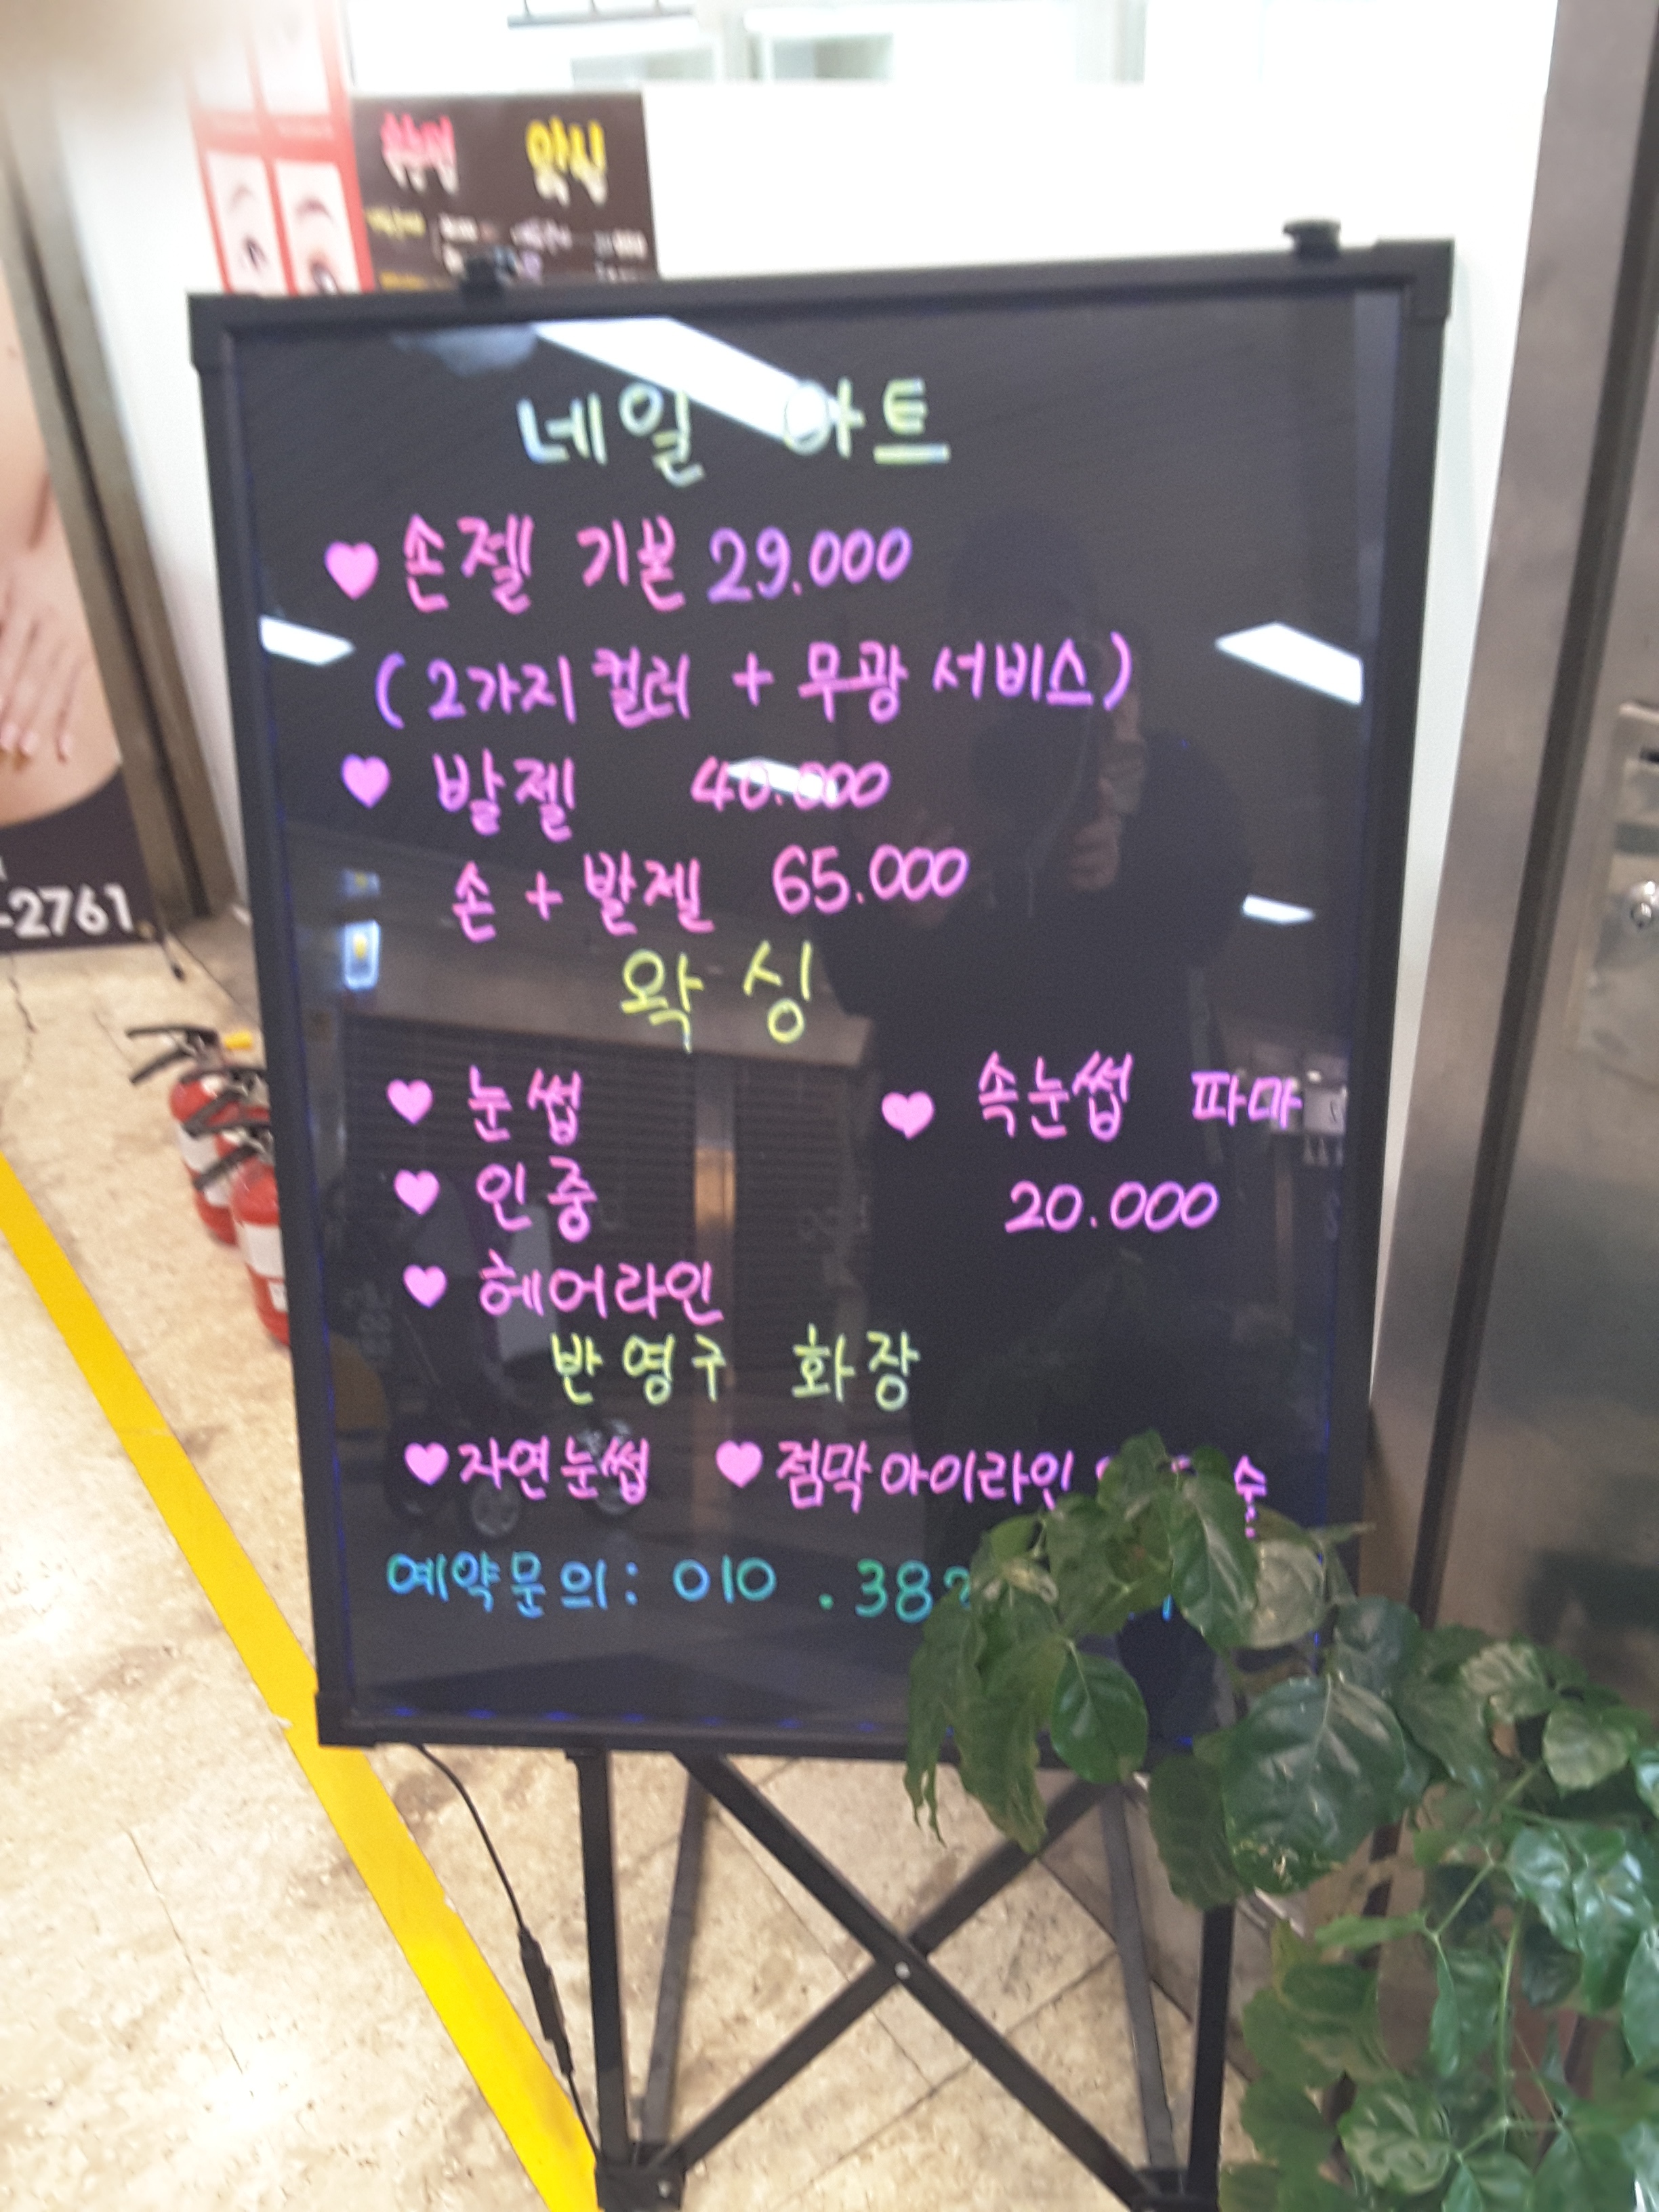 왁싱
네일 아트
♥ 손젤 기본 29.000
(2가지 컬러 + 무광 서비스)
♥ 발젤 40.000
손 + 발젤 65.000
왁싱
♥ 눈썹
♥ 인중
♥ 헤어라인
♥ 속눈썹 파마
20.000
반영구 화장
♥ 자연눈썹 ♥ 점막아이라인
예약문의: 010 .38
-2761